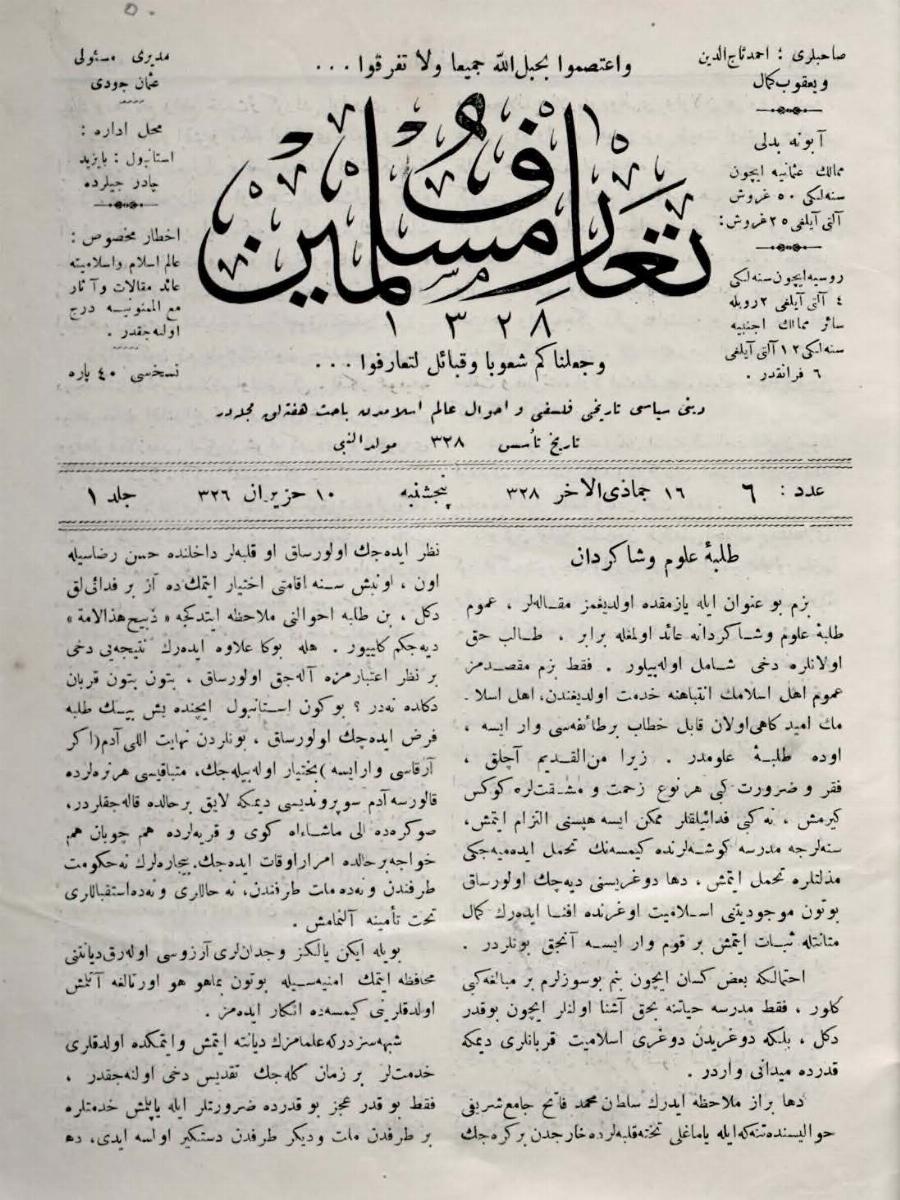 صاحبلری : احمد تاج‌الدین
و یعقوب کمال
آبونه بدلی
ممالك عثمانیه ایچون
سنه‌لكی ٥٠ غروش
آلتی آیلغی ٢٥ غروش :
روسیه ایچون سنه‌لكی
٤ آلتی آیلغی ٢ روبله
سائر ممالك اجنبیه
سنه‌لكی ١٢ آلتی آیلغی
٦ فرانقدر .
واعتصموا بحبل الله جمیعا ولا تفرقوا . . .
تعارف مسلمین
١٣٢٨
وجعلناكم شعوبا وقبائل لتعارفوا . . .
مدیری مسئولی
عثمان جودی
محل اداره :
استانبول : بایزید
چادر جیلرده
اخطار مخصوص :
عالم اسلام واسلامیته
عائد مقالات وآثار
مع الممنونیه درج
اولنه‌جقدر .
نسخسی ٤٠ پاره
دینی سیاسی تاریخی فلسفی و احوال عالم اسلامدن باحث هفته‌لق مجله‌در
تاریخ تأسس ٣٢٨ مولد النبی
عدد : ٦ ١٦ جماذی الاخر ٣٢٨ پنجشنبه ١٠ حزیران ٣٢٦ جلد ١
طلبهٔ علوم وشاكردان
بزم بو عنوان ایله یازمقده اولدیغمز مقاله‌لر ، عموم
طلبهٔ علوم وشاكردانه عائد اولمغله برابر . طالب حق
اولانلره دخی شامل اوله‌بیلور . فقط بزم مقصدمز
عموم اهل اسلامك انتباهنه خدمت اولدیغندن، اهل اسلا ـ
مك امید كاهی اولان قابل خطاب برطائفه‌سی وار ایسه ،
اوده طلبهٔ علومدر . زیرا من‌القدیم آچلق ،
فقر و ضرورت كبی هر نوع زحمت و مشقتلره كوكس
كیرمش ، نه كبی فدائیلقلر ممكن ایسه هپسنی التزام ایتمش،
سنه‌لرجه مدرسه كوشه‌لرنده كیمسه‌نك تحمل ایده‌میه‌جكی
مذلتلره تحمل ایتمش ، دها دوغریسنی دیه‌جك اولورساق
بوتون موجودیتنی اسلامیت اوغرنده افنا ایده‌رك كمال
متانتله ثبات ایتمش بر قوم وار ایسه آنجق بونلردر .
احتمالكه بعض كسان ایچون بنم بوسوزلرم بر مبالغه كبی
كلور ، فقط مدرسه حیاتنه بحق آشنا اولنلر ایچون بوقدر
دكل ، بلكه دوغریدن دوغری اسلامیت قربانلری دیمكه
قدرده میدانی واردر .
دها براز ملاحظه ایدرك سلطان محمد فاتح جامع شریفی
حوالیسنده تنكه ایله یاماغلی تخته قلبه‌لرده خارجدن بركره‌جك
نظر ایده‌جك اولورساق او قلبه‌لر داخلنده حسن رضاسیله
اون ، اونبش سنه اقامتی اختیار ایتمك ده آز بر فدائی‌لق
دكل ، بن طلبه احوالنی ملاحظه ایتدكجه « ذبیح هذالامة »
دیه‌جكم كلییور . هله بوكا علاوه ایده‌رك نتیجه‌یی دخی
بر نظر اعتبارمزه آله‌جق اولورساق ، بتون بتون قربان
دكلده نه‌در ؟ بوكون استانبول ایچنده بش بیك طلبه
فرض ایده‌جك اولورساق ، بونلردن نهایت اللی آدم (اكر
آرقاسی وارایسه) بختیار اوله‌بیله‌جك، متباقیسی هر نره‌لرده
قالورسه آدم سوپروندیسی دیمكه لایق برحالده قاله‌جقلردر،
صوكره‌ده الی ماشاءالله كوی و قریه‌لرده هم چوبان هم
خواجه برحالده امرار اوقات ایده‌جك. بیچاره‌لرك نه حكومت
طرفندن ونه‌ده ملت طرفندن، نه حاللری ونه‌ده استقباللری
تحت تأمینه آلنمامش .
بویله ایكن یالكز وجدانلری آرزوسی اوله‌رق دیانتنی
محافظه ایتمك امنیه‌سیله بوتون بماهو هو اورتالغه آتلمش
اولدقلرینی كیمسه‌ده انكار ایده‌مز .
شبهه‌سزدركه علمامزك دیانته ایتمش وایتمكده اولدقلری
خدمتلر بر زمان كله‌جك تقدیس دخی اولنه‌جقدر ،
فقط بو قدر عجز بو قدرده ضرورتلر ایله یاپلمش خدمتلره
بر طرفدن ملت ودیكر طرفدن دستكیر اولسه ایدی، دها